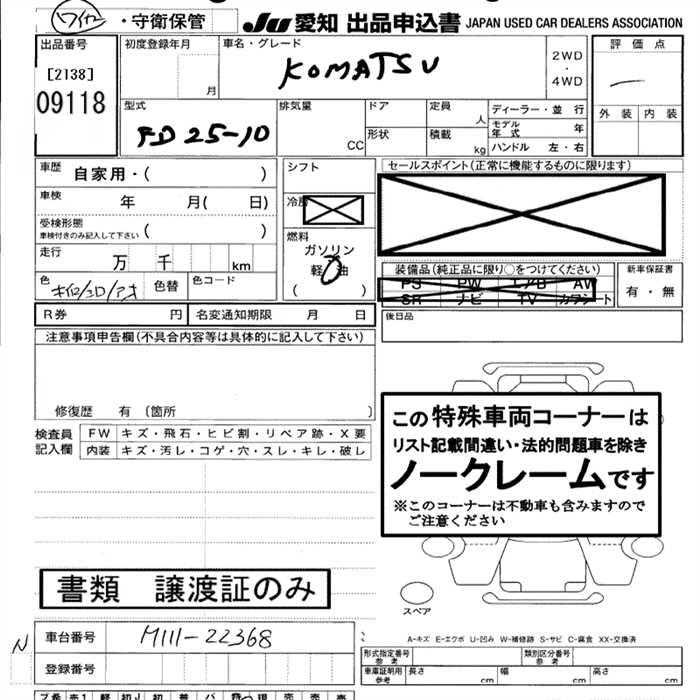 ワイヤー・守衛保管 JU 愛知 出品申込書 JAPAN USED CAR DEALERS ASSOCIATION
出品番号
[2138]
09118
初度登録年月
月
車名・グレード
KOMATSU
2WD
・
4WD
評価点
外装 内装
型式
FD25-10
排気量
CC
ドア
形状
定員
人
積載
kg
ディーラー・並 行
モデル年式 年
ハンドル 左・右
車歴 自家用・( )
車検 年 月( 日)
受検形態
車検付きのみ記入して下さい ( )
走行 万 千 km
色
色替 色コード
シフト
冷房
燃料
ガソリン
軽油
( )
セールスポイント(正常に機能するものに限ります)
装備品(純正品に限り○をつけてください)
PS PW エアB AW
SR ナビ TV カワシート
新車保証書
有・無
後日品
R券 円 名変通知期限 月 日
注意事項申告欄(不具合内容等は具体的に記入して下さい)
修復歴 有 〔箇所 〕
検査員記入欄
FW キズ・飛石・ヒビ割・リペア跡・X要
内装 キズ・汚レ・コゲ・穴・スレ・キレ・破レ
この特殊車両コーナーは
リスト記載間違い・法的問題車を除き
ノークレームです
※このコーナーは不動車も含みますので
ご注意ください
書類 譲渡証のみ
スペア
N 車台番号 M111-22368
登録番号
A-キズ E-エクボ U-凹み W-補修跡 S-サビ C-腐食 XX-交換済
形式指定番号 参考
類別区分番号 参考
車庫証明用 参考 長さ cm 幅 cm 高さ cm